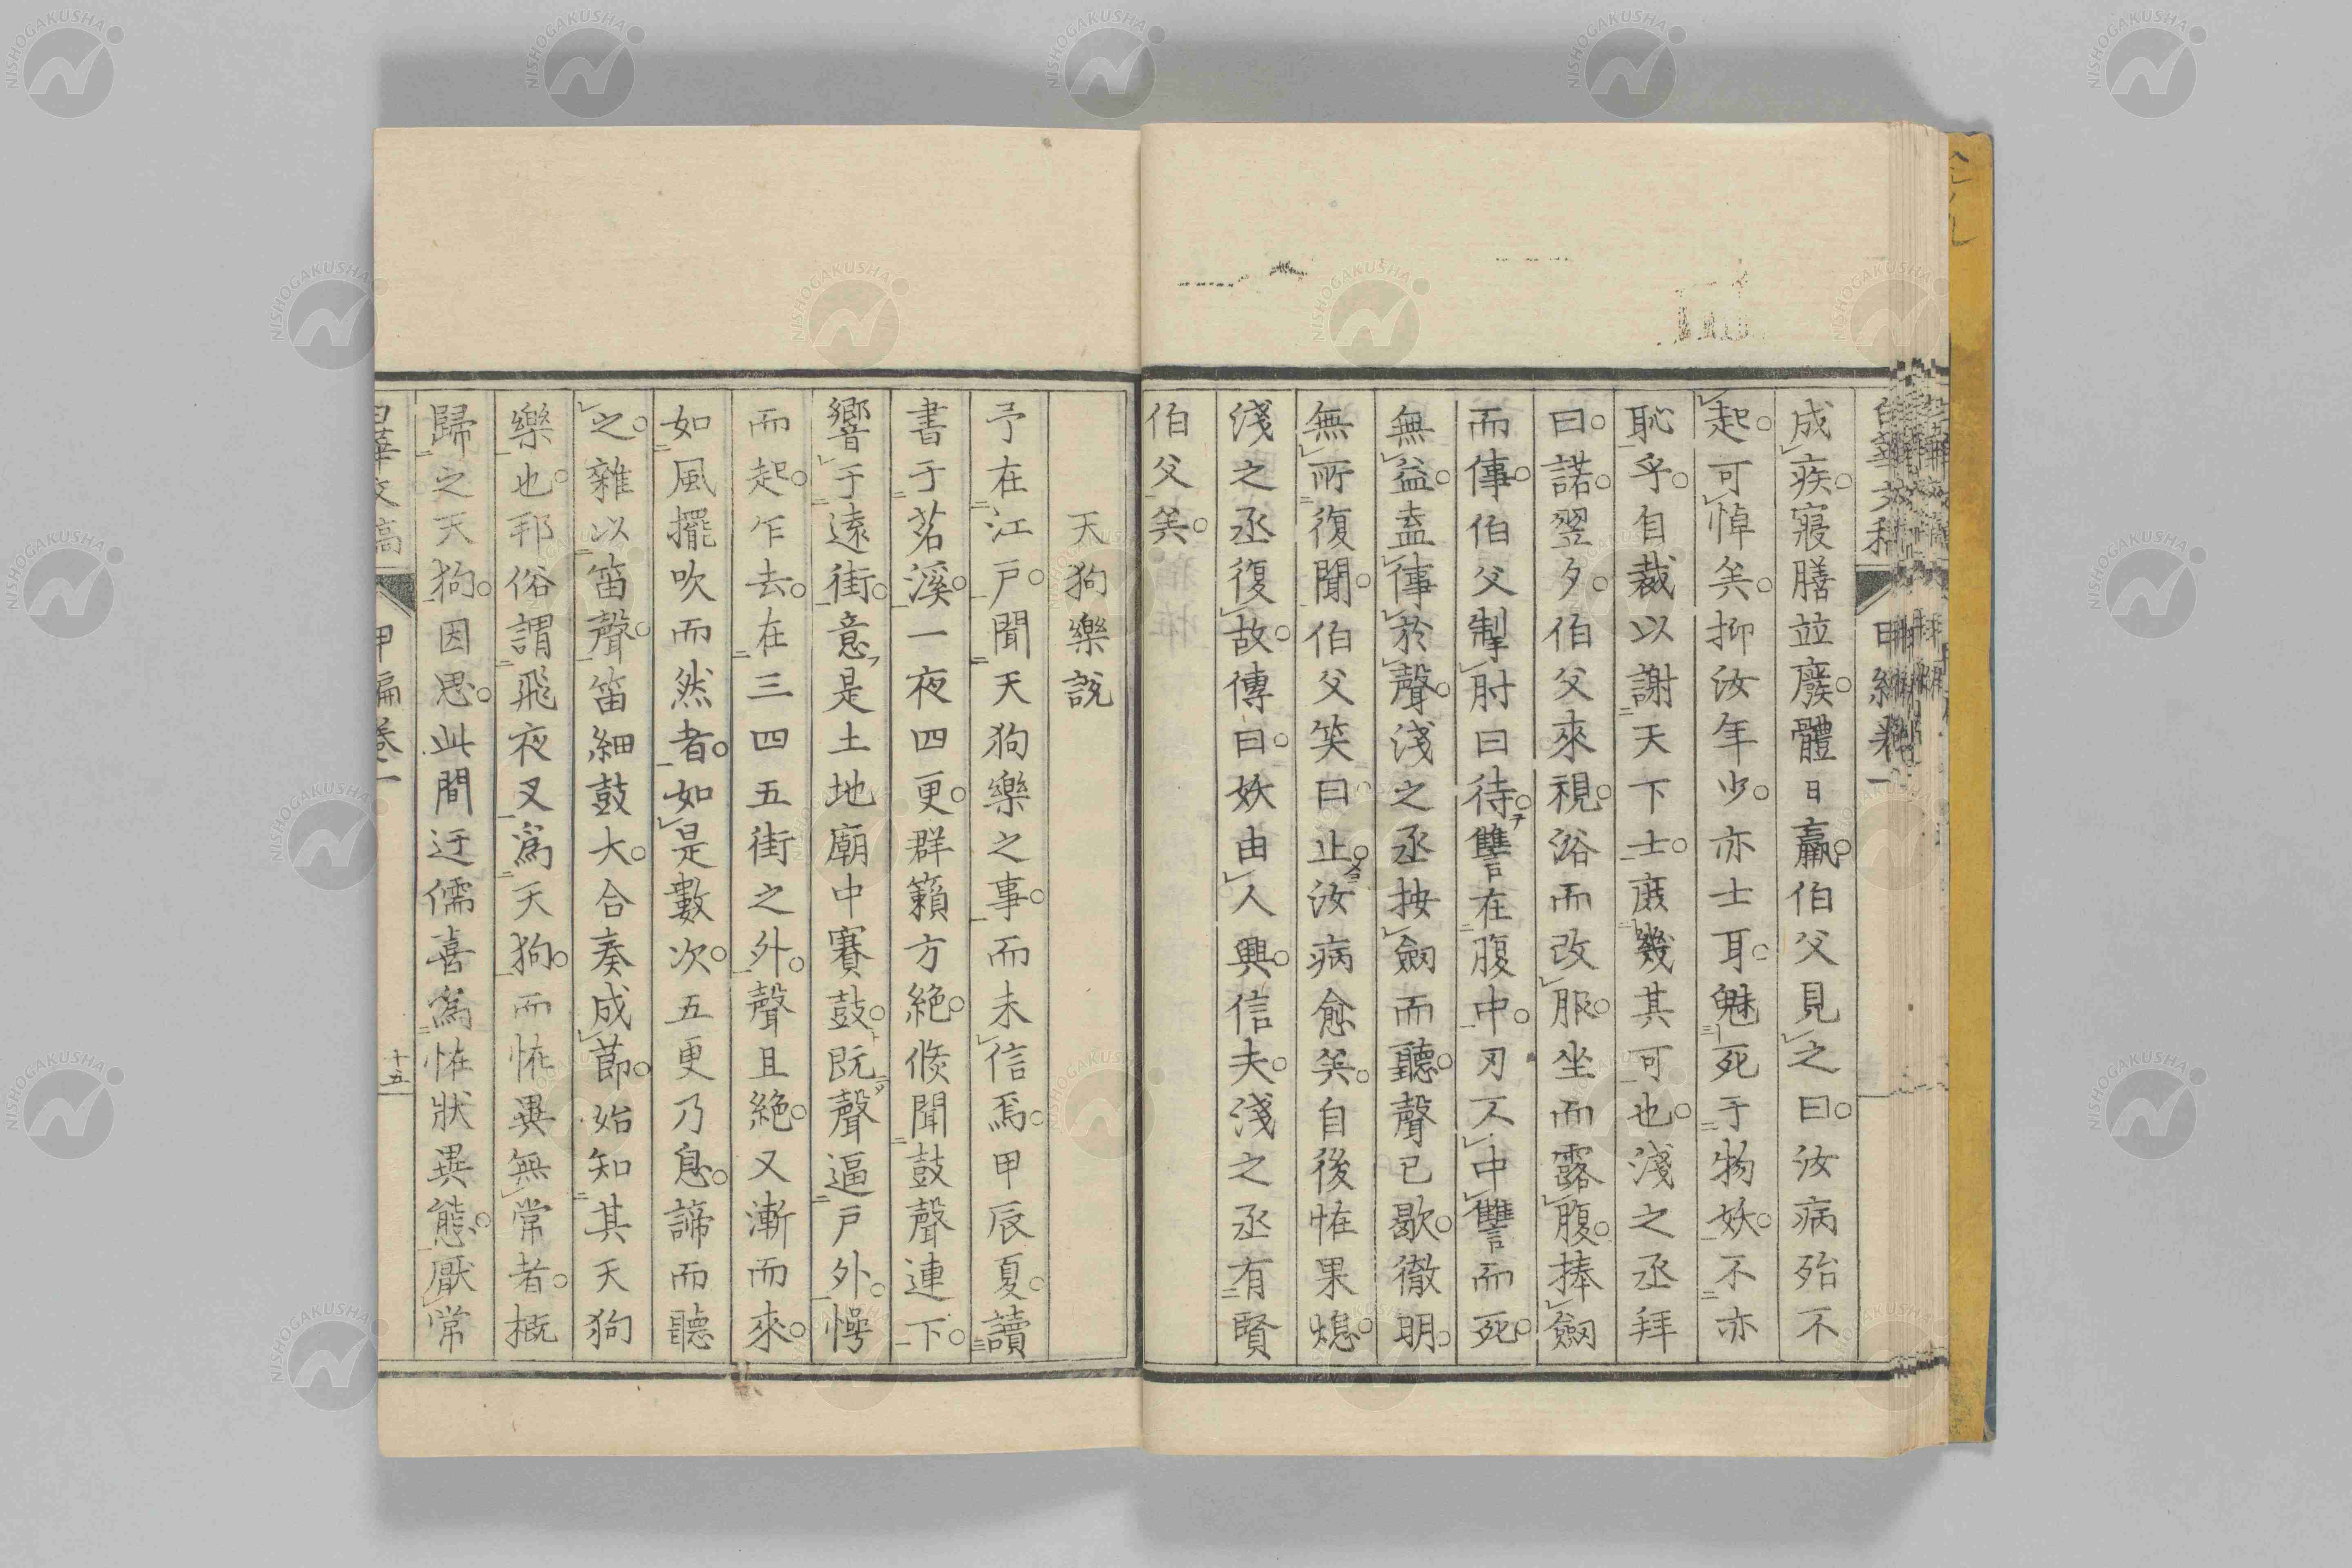 成疾。寢膳並廢。體日羸。伯父見之曰。汝病殆不
起。可悼矣。抑汝年少。亦士耳。魅死于物妖。不亦
恥乎。自裁以謝天下士。庶幾其可也。淺之丞拜
曰。諾。翌夕。伯父來視。浴而改服。坐而露腹。捧劔
而倳。伯父掣肘曰。待。讐在腹中。刃不中讐而死。
無益。盍倳於聲。淺之丞按劔而聽。聲已歇。徹明。
無所復聞。伯父笑曰。止。汝病愈矣。自後恠果熄。
淺之丞復故。傳曰。妖由人興。信夫。淺之丞有賢
伯父矣。
天狗樂說
予在江戶。聞天狗樂之事。而未信焉。甲辰夏。讀
書于茗溪。一夜四更。群籟方絕。倐聞鼓聲連下。
響于遠街。意是土地廟中賽鼓。既聲逼戶外。愕
而起。乍去。在三四五街之外。聲且絕。又漸而來。
如風擺吹而然者。如是數次。五更乃息。諦而聽
之。雜以笛聲。笛細鼓大。合奏成節。始知其天狗
樂也。邦俗謂飛夜叉爲天狗。而恠異無常者。概
歸之天狗。因思。此間迂儒喜爲恠狀異態。厭常
甲編卷一
十五
NISHOGAKUSHA